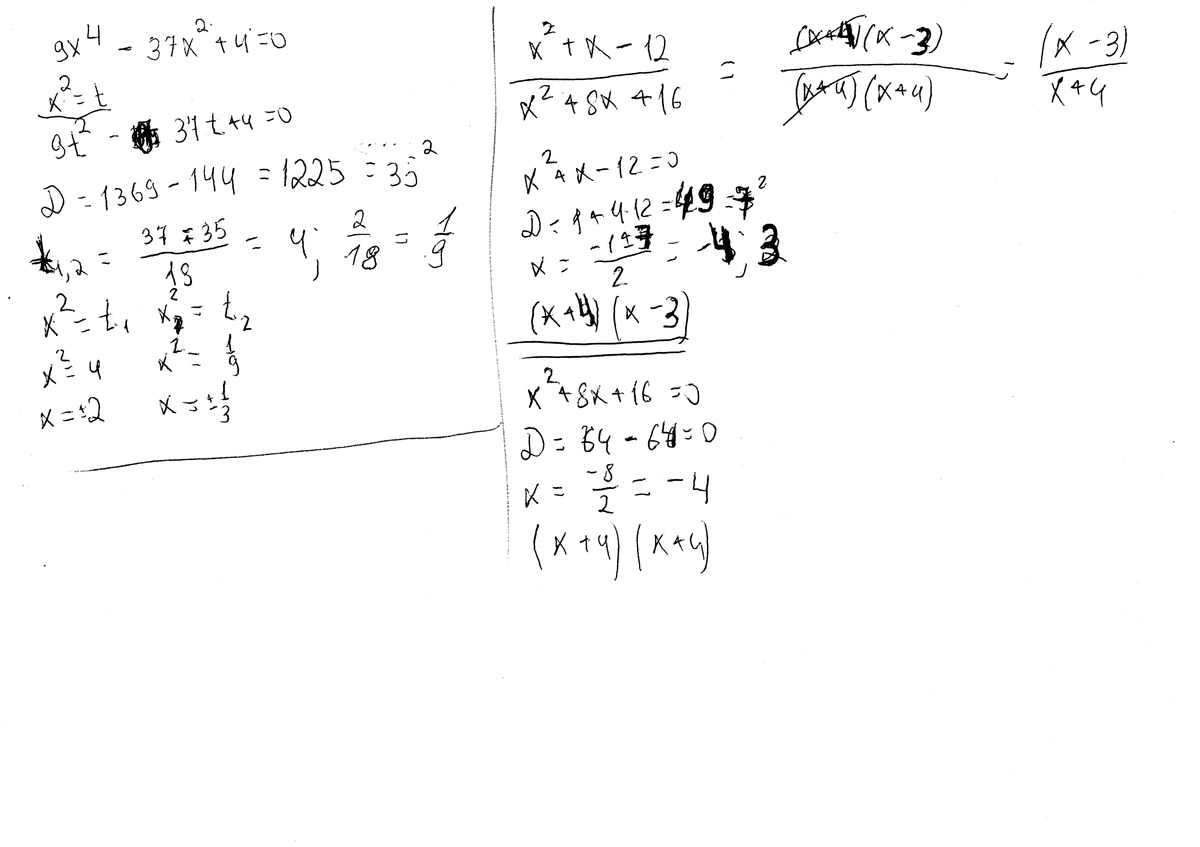 9x⁴ - 37x² + 4 = 0
x² = t
9t² - 37t + 4 = 0
D = 1369 - 144 = 1225 = 35²
t₁,₂ = (37 ∓ 35)/18 = 4; 2/18 = 1/9
x² = t₁   x² = t₂
x² = 4   x² = 1/9
x = ±2   x = ±1/3
(x² + x - 12)/(x² + 8x + 16) = ((x+4)(x-3))/((x+4)(x+4)) = (x-3)/(x+4)
x² + x - 12 = 0
D = 1 + 4·12 = 49 = 7²
x = (-1±7)/2 = -4; 3
(x+4)(x-3)
x² + 8x + 16 = 0
D = 64 - 64 = 0
x = -8/2 = -4
(x+4)(x+4)